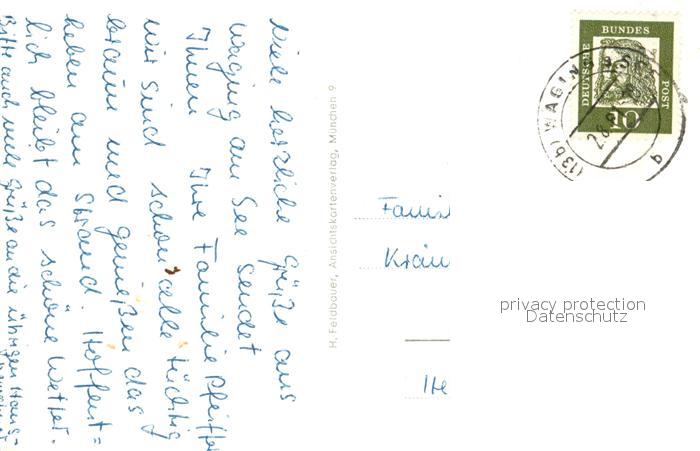 Viele herzliche Grüße aus
Waging am See sendet
Ihnen Ihre Familie Pfeiffer
wir sind schon alle tüchtig
braun und genießen das
leben am Strand. Hoffent=
lich bleibt das schöne Wetter.
Bitte auch viele Grüße an die übrigen Haus-
H. Feldbauer, Ansichtskartenverlag, München 9
DEUTSCHE BUNDES POST
10
(13b) WAGING
Famil
Kräu
He
privacy protection
Datenschutz